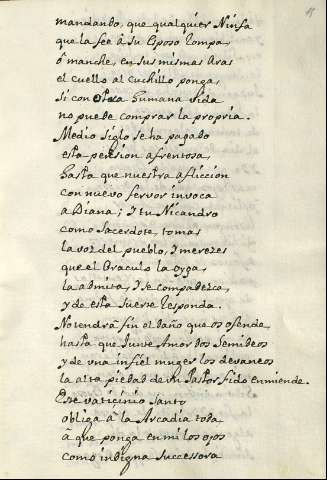 mandando, que qualquier Ninfa
que la fee à su Esposo rompa,
ô manche, en sus mismas Aras
el cuello al cuchillo ponga,
si con otra humana vida
no puede comprar la propria.
Medio siglo se ha pagado
esta pension afrentosa,
hasta que nuestra afliccion
con nuevo fervor invoca
a Diana; y tu Nicandro
como Sacerdote, tomas
la voz del pueblo, y mereces
que el Oraculo la oyga,
la admita, y se compadezca,
y de esta suerte responda.
No tendrà fin el daño que os ofende,
hasta que Junte Amor dos Semideos
y de una infiel muger los devaneos
la alta piedad de un Pastor fido enmiende.
Este vaticinio santo
obliga à la Arcadia toda
à que ponga en mi los ojos
como indigna successora